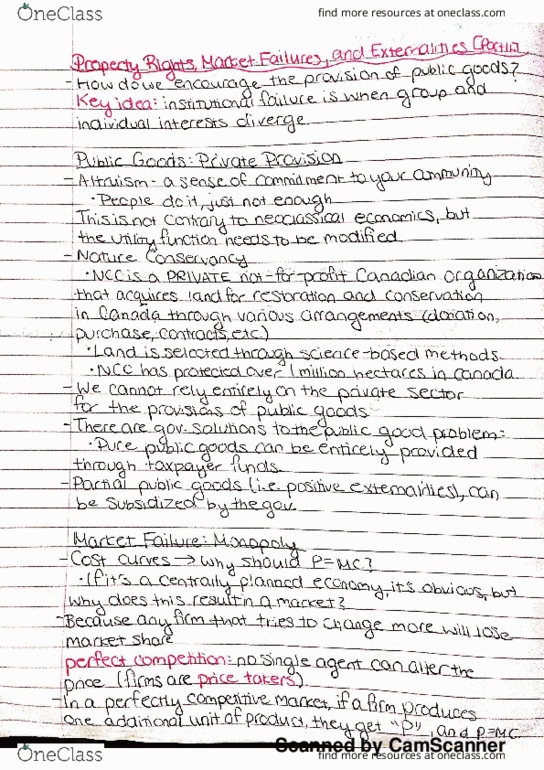 OneClass
find more resources at oneclass.com
Property Rights, Market Failures, and Externalities (Part II)
- How do we encourage the provision of public goods?
Key idea: institutional failure is when group and
individual interests diverge
Public Goods: Private Provision
- Altruism - a sense of commitment to your community
• People do it, just not enough
This is not contrary to neoclassical economics, but
the utility function needs to be modified
- Nature Conservancy
• NCC is a PRIVATE not-for-profit Canadian organization
that acquires land for restoration and conservation
in Canada through various arrangements (donation,
purchase, contracts, etc.)
• Land is selected through science-based methods
• NCC has protected over 1 million hectares in Canada
- We cannot rely entirely on the private sector
for the provisions of public goods
- There are gov. solutions to the public good problem:
• Pure public goods can be entirely provided
through taxpayer funds
- Partial public goods (i.e. positive externalities), can
be subsidized by the gov.
Market Failure: Monopoly
- Cost curves → why should P=MC?
• If it's a centrally planned economy, it's obvious, but
why does this result in a market?
- Because any firm that tries to change more will lose
market share
perfect competition: no single agent can alter the
price (firms are price takers)
- In a perfectly competitive market, if a firm produces
one additional unit of product, they get "P", and P=MC
Scanned by CamScanner
OneClass
find more resources at oneclass.com